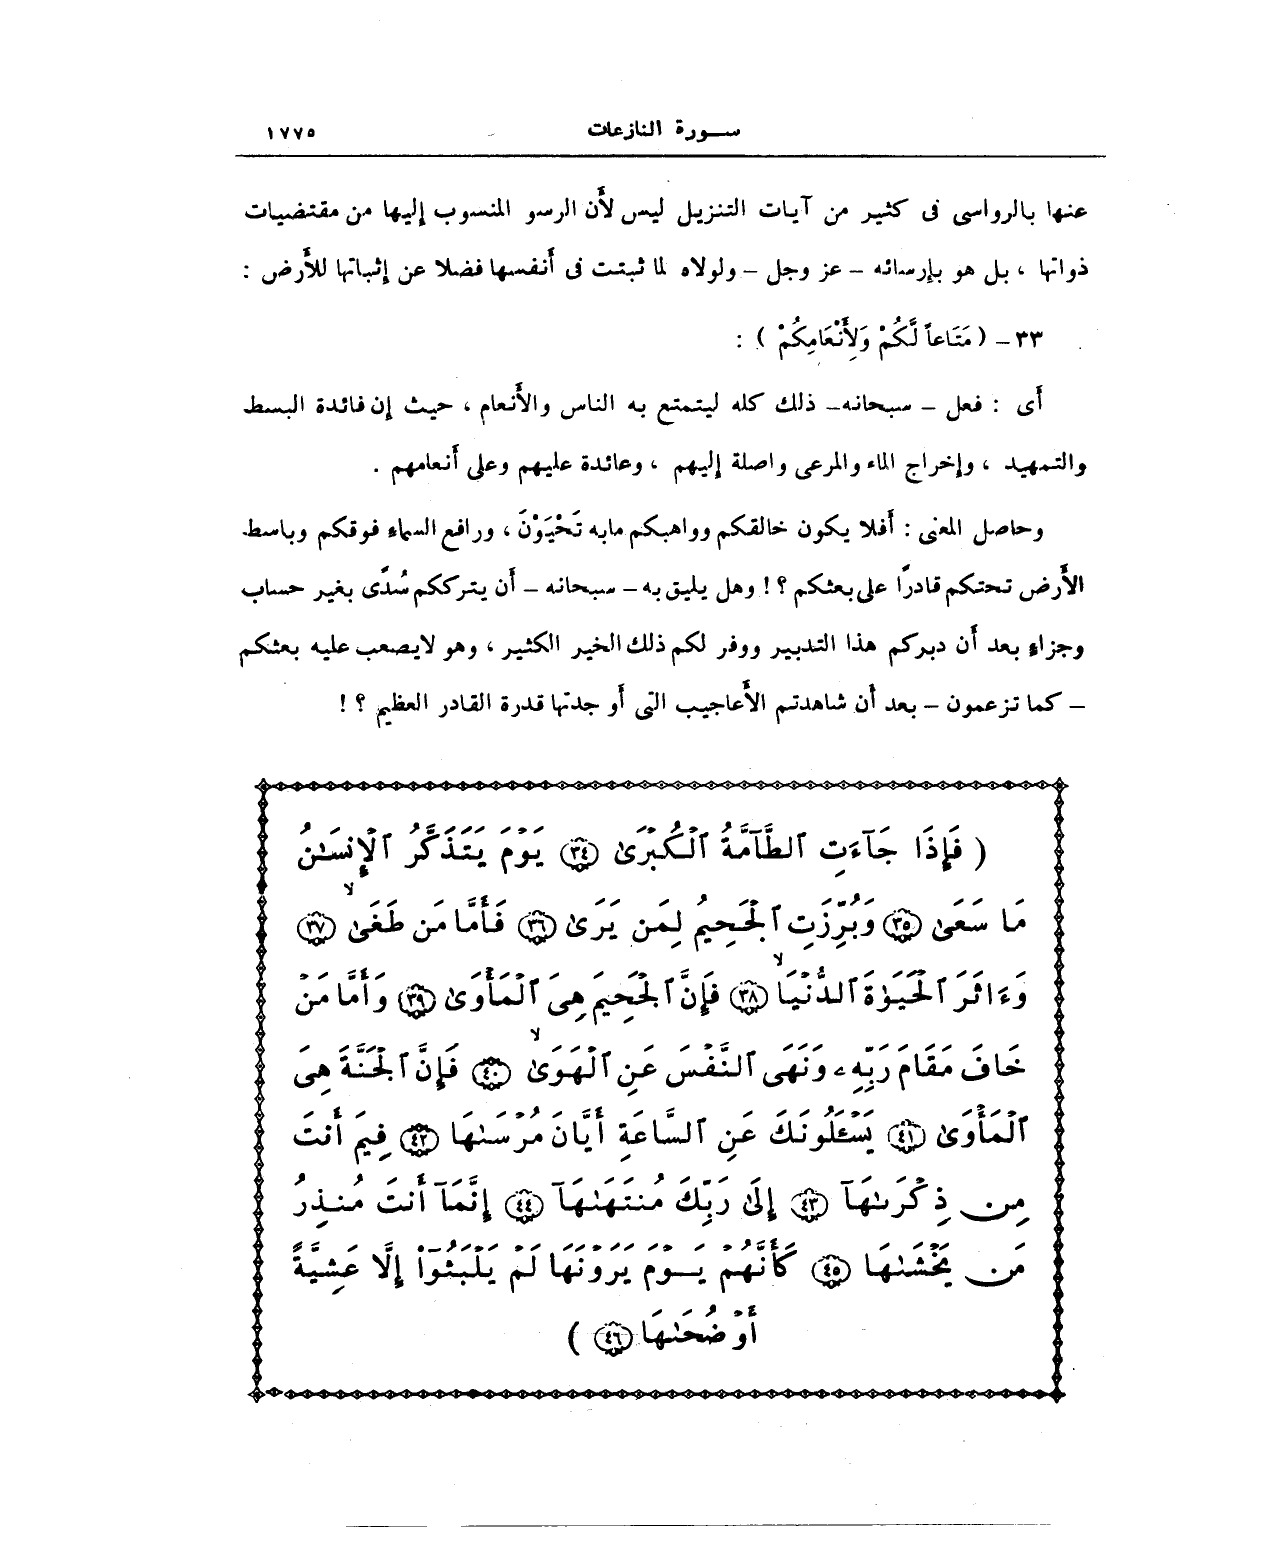 سورة النازعات ١٧٧٥
عنها بالرواسى فى كثير من آيات التنزيل ليس لأَن الرسو المنسوب إليها من مقتضيات
ذواتها ، بل هو بإرسائه – عز وجل – ولولاه لما ثبتت فى أَنفسها فضلا عن إثباتها للأَرض :
٣٣ – ( مَتَاعاً لَّكُمْ وَلِأَنْعَامِكُمْ ) :
أَى : فعل – سبحانه – ذلك كله ليتمتع به الناس والأَنعام ، حيث إن فائدة البسط
والتمهيد ، وإخراج الماء والمرعى واصلة إليهم ، وعائدة عليهم وعلى أَنعامهم .
وحاصل المعنى : أَفلا يكون خالقكم وواهبكم مابه تَحْيَوْنَ ، ورافع السماء فوقكم وباسط
الأَرض تحتكم قادرًا على بعثكم ؟! وهل يليق به – سبحانه – أَن يترككم سُدًى بغير حساب
وجزاءٍ بعد أَن دبركم هذا التدبير ووفر لكم ذلك الخير الكثير ، وهو لايصعب عليه بعثكم
– كما تزعمون – بعد أَن شاهدتم الأَعاجيب التى أَو جدتها قدرة القادر العظيم ؟!
( فَإِذَا جَآءَتِ ٱلطَّآمَّةُ ٱلْكُبْرَىٰ ﴿٣٤﴾ يَوْمَ يَتَذَكَّرُ ٱلْإِنسَـٰنُ
مَا سَعَىٰ ﴿٣٥﴾ وَبُرِّزَتِ ٱلْجَحِيمُ لِمَن يَرَىٰ ﴿٣٦﴾ فَأَمَّا مَن طَغَىٰ ﴿٣٧﴾
وَءَاثَرَ ٱلْحَيَوٰةَ ٱلدُّنْيَا ﴿٣٨﴾ فَإِنَّ ٱلْجَحِيمَ هِىَ ٱلْمَأْوَىٰ ﴿٣٩﴾ وَأَمَّا مَنْ
خَافَ مَقَامَ رَبِّهِۦ وَنَهَى ٱلنَّفْسَ عَنِ ٱلْهَوَىٰ ﴿٤٠﴾ فَإِنَّ ٱلْجَنَّةَ هِىَ
ٱلْمَأْوَىٰ ﴿٤١﴾ يَسْـَٔلُونَكَ عَنِ ٱلسَّاعَةِ أَيَّانَ مُرْسَىٰهَا ﴿٤٢﴾ فِيمَ أَنتَ
مِن ذِكْرَىٰهَآ ﴿٤٣﴾ إِلَىٰ رَبِّكَ مُنتَهَىٰهَآ ﴿٤٤﴾ إِنَّمَآ أَنتَ مُنذِرُ
مَن يَخْشَىٰهَا ﴿٤٥﴾ كَأَنَّهُمْ يَوْمَ يَرَوْنَهَا لَمْ يَلْبَثُوٓا۟ إِلَّا عَشِيَّةً
أَوْ ضُحَىٰهَا ﴿٤٦﴾ )